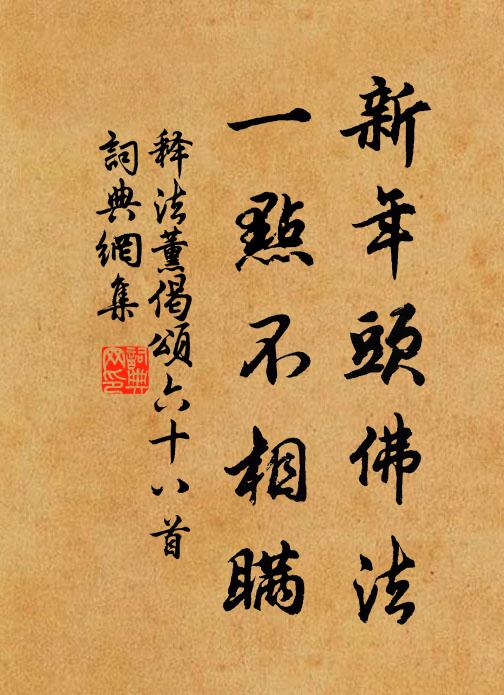 新年頭佛法
一點不相瞞
释法薰偈頌六十八首
詞典網集
詞典網印